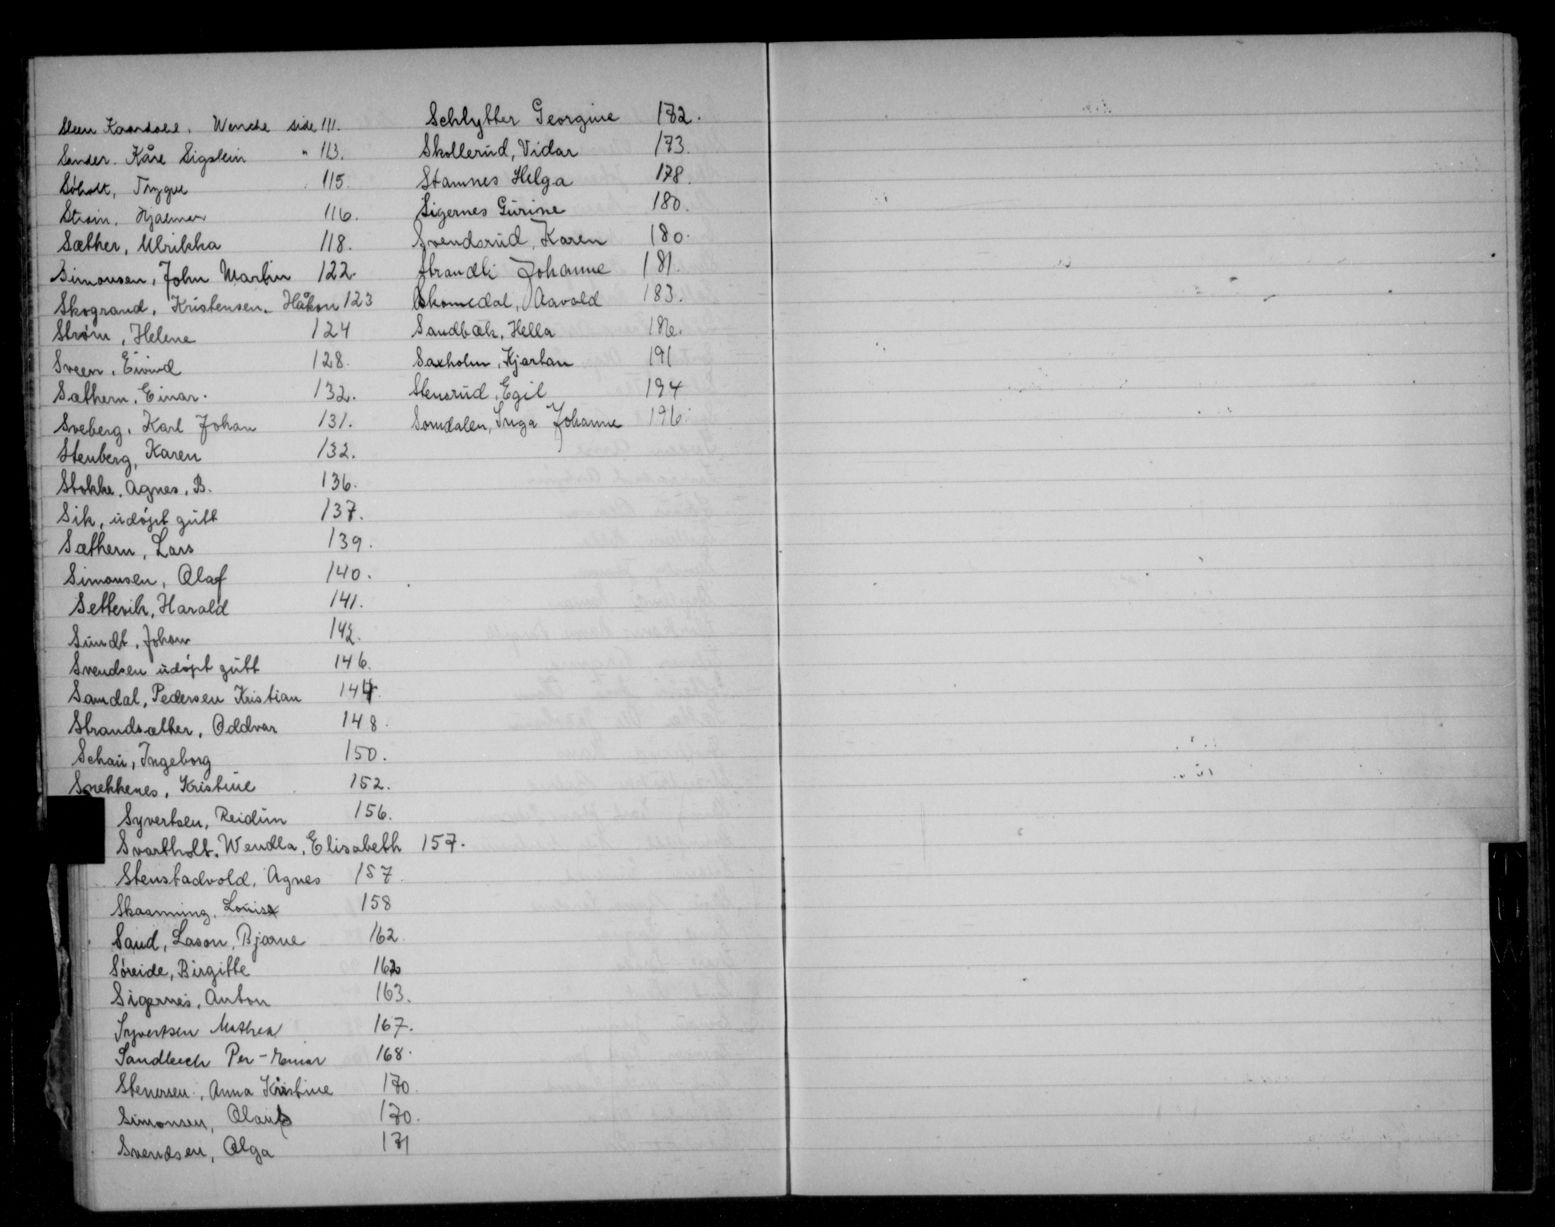 Steen Kaarsdal. Wenche side 111.
Sander. Kåre Sigstein " 113.
Søholt, Trygve 115.
Strøm. Hjalmar 116.
Sæther, Ulrikka 118.
Simonsen, John Martin 122.
Skogrand, Kristensen, Håkon 123
Strøm, Helene 124
Sveen, Eivind 128.
Sæthern, Einar. 132.
Sveberg, Karl Johan 131.
Stenberg, Karen 132.
Stokke, Agnes, B. 136.
Sik, udøpt gutt 137.
Sæthern, Lars 139.
Simonsen, Olaf 140.
Settevik, Harald 141.
Sundt, Johan 142.
Svendsen udøpt gutt 146.
Samdal, Pedersen Kristian 144.
Strandsæther, Oddvar 148.
Schau, Ingeborg 150.
Snekkenes, Kristine 152.
Syvertsen, Reidun 156.
Svartholt, Wendla, Elisabeth 157.
Stenstadvold, Agnes 157
Skaanning, Louise 158
Sand, Lason, Bjarne 162.
Søreide, Birgitte 162
Sigernes, Anton 163.
Syvertsen Mathea 167.
Sandbech Per-Einar 168.
Stenersen, Anna Kristine 170.
Simonsen, Olaug 170.
Svendsen, Olga 171
Schlytter Georgine 172.
Skollerud, Vidar 173.
Stamnes Helga 178.
Sigernes Gurine 180.
Svendsrud, Karen 180.
Strandli Johanne 181.
Skomedal, Aavald 183.
Sandbæk, Hella 186.
Saxholm, Kjartan 191
Stensrud, Egil 194
Somdalen, Inga Johanne 196